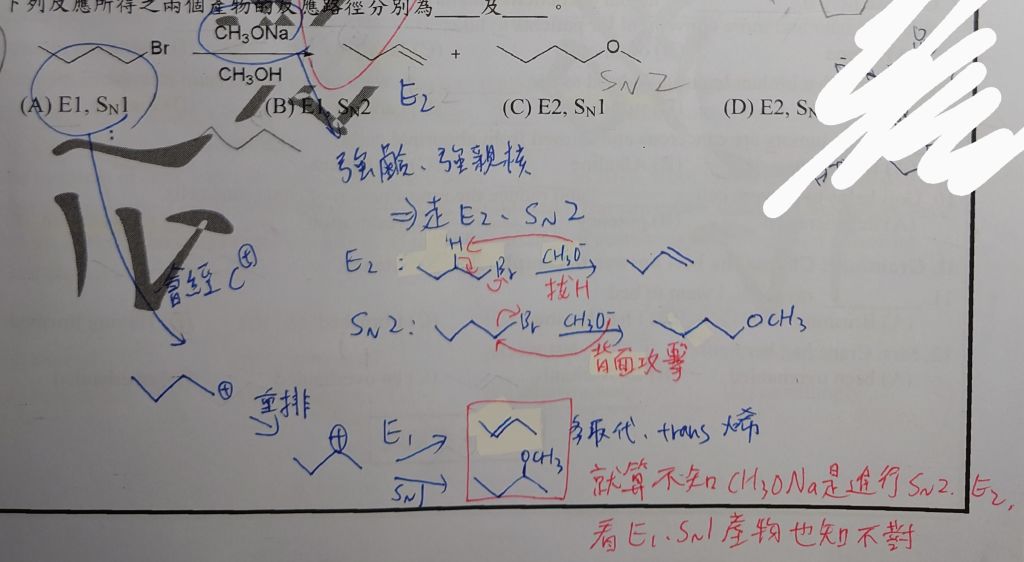 下列反應所得之兩個產物的反應路徑分別為____及____。
Br CH₃ONa CH₃OH + O
SN2
(A) E1, SN1 (B) E1, SN2 (C) E2, SN1 (D) E2, SN
E2
強鹼、強親核
⇒走 E2、SN2
E2: H Br CH₃O⁻ 拔H
會經 C⊕
SN2: Br CH₃O⁻ OCH₃
背面攻擊
⊕ 重排
⊕ E1 多取代、trans 烯
SN1 OCH₃
就算不知 CH₃ONa是進行SN2、E2,
看 E1、SN1產物也知不對